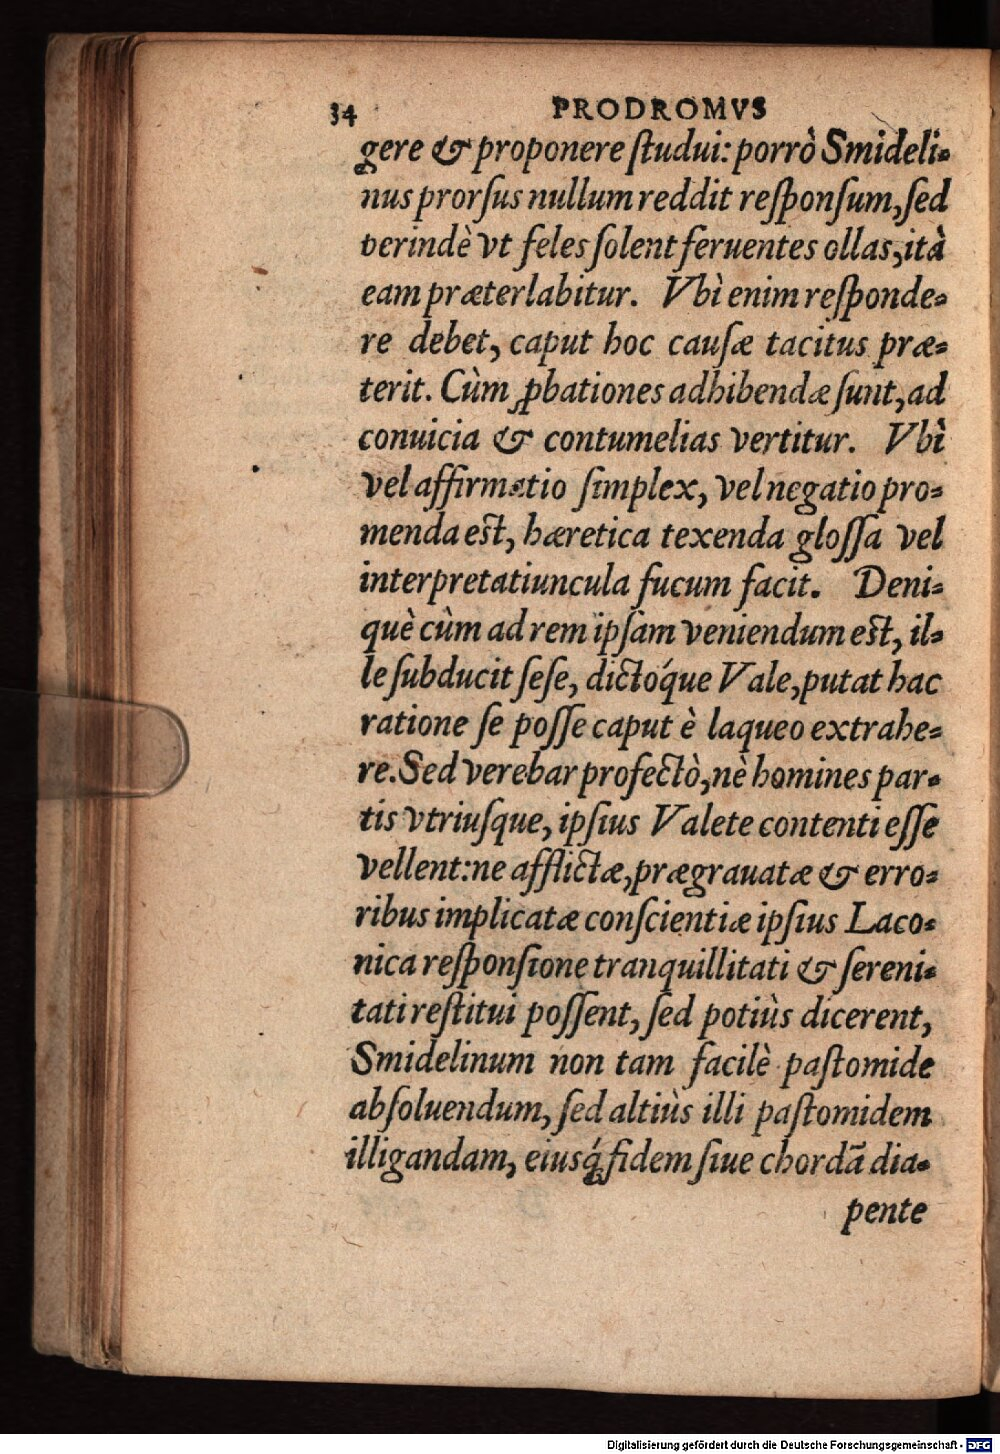 34 PRODROMVS
gere & proponere ſtudui: porrò Smideli-
nus prorſus nullum reddit reſponſum, ſed
perindè vt feles ſolent feruentes ollas, ità
eam præterlabitur. Vbì enim reſponde-
re debet, caput hoc cauſæ tacitus præ-
terit. Cùm ꝓbationes adhibendæ ſunt, ad
conuicia & contumelias vertitur. Vbì
vel affirmatio ſimplex, vel negatio pro-
menda eſt, hæretica texenda gloſſa vel
interpretatiuncula fucum facit. Deni-
què cùm ad rem ipſam veniendum eſt, il-
le ſubducit ſeſe, dictóque Vale, putat hac
ratione ſe poſſe caput è laqueo extrahe-
re. Sed verebar profectò, nè homines par-
tis vtriuſque, ipſius Valete contenti eſſe
vellent: ne afflictæ, prægrauatæ & erro-
ribus implicatæ conſcientiæ ipſius Laco-
nica reſponſione tranquillitati & ſereni-
tati reſtitui poſſent, ſed potiùs dicerent,
Smidelinum non tam facilè paſtomide
abſoluendum, ſed altiùs illi paſtomidem
illigandam, eiusq́; fidem ſiue chordā dia-
pente
Digitalisierung gefördert durch die Deutsche Forschungsgemeinschaft - DFG